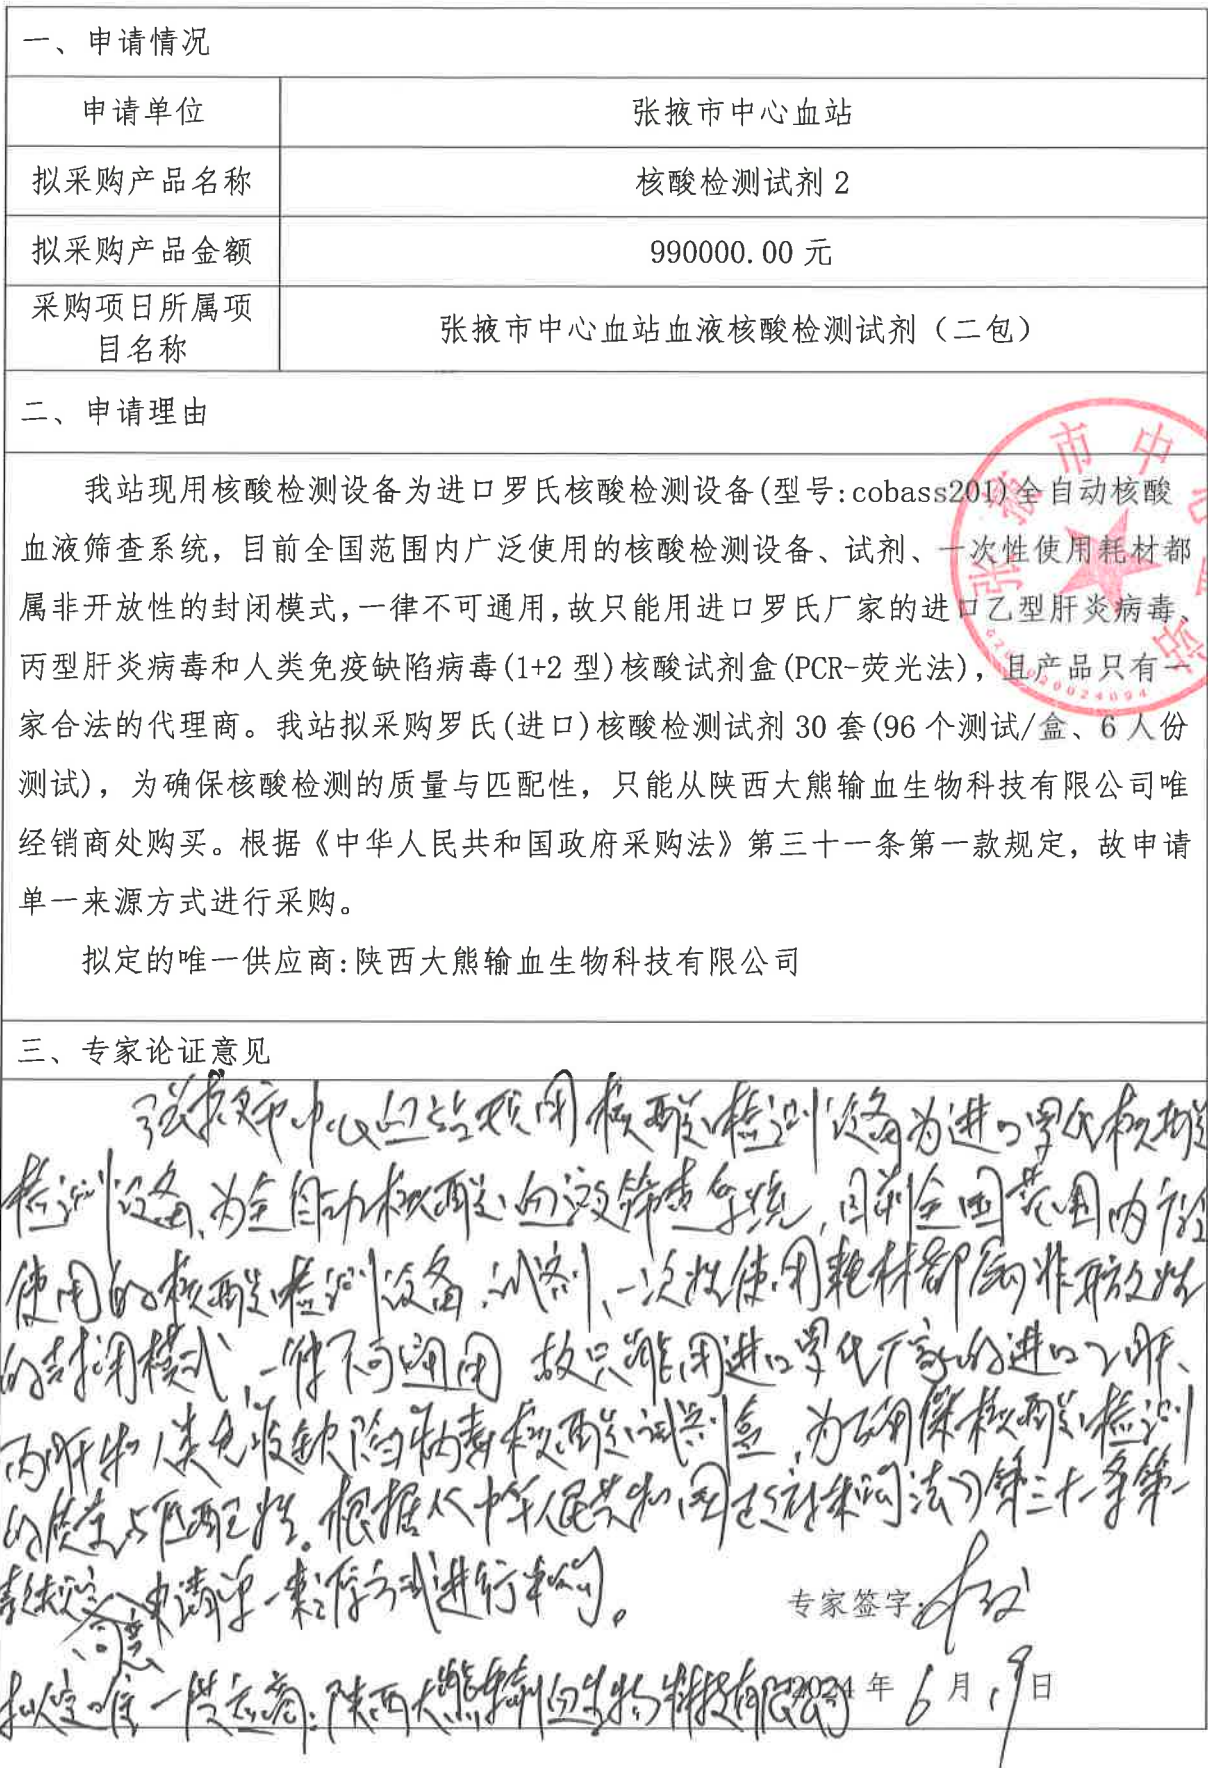 一、申请情况
申请单位 张掖市中心血站
拟采购产品名称 核酸检测试剂2
拟采购产品金额 990000.00元
采购项日所属项
目名称 张掖市中心血站血液核酸检测试剂（二包）
二、申请理由
我站现用核酸检测设备为进口罗氏核酸检测设备(型号:cobass201)全自动核酸
血液筛查系统，目前全国范围内广泛使用的核酸检测设备、试剂、一次性使用耗材都
属非开放性的封闭模式,一律不可通用,故只能用进口罗氏厂家的进口乙型肝炎病毒、
丙型肝炎病毒和人类免疫缺陷病毒(1+2型)核酸试剂盒(PCR-荧光法)，且产品只有一
家合法的代理商。我站拟采购罗氏(进口)核酸检测试剂30套(96个测试/盒、6人份
测试)，为确保核酸检测的质量与匹配性，只能从陕西大熊输血生物科技有限公司唯
经销商处购买。根据《中华人民共和国政府采购法》第三十一条第一款规定，故申请
单一来源方式进行采购。
拟定的唯一供应商:陕西大熊输血生物科技有限公司
张掖市中心血站
三、专家论证意见
张掖市中心血站现用核酸检测设备为进口罗氏核酸
检测设备、为全自动核酸血液筛查系统,目前全国范围内广泛
使用的核酸检测设备、试剂、一次性使用耗材都属非开放性
的封闭模式,一律不可通用 故只能用进口罗氏厂家的进口乙肝、
丙肝和人类免疫缺陷病毒核酸试剂盒,为确保核酸检测
的质量与匹配性。根据《中华人民共和国政府采购法》第三十一条第一
款规定 同意申请单一来源方式进行采购。
专家签字:
拟定唯一供应商:陕西大熊输血生物科技有限公司
2024年6月19日